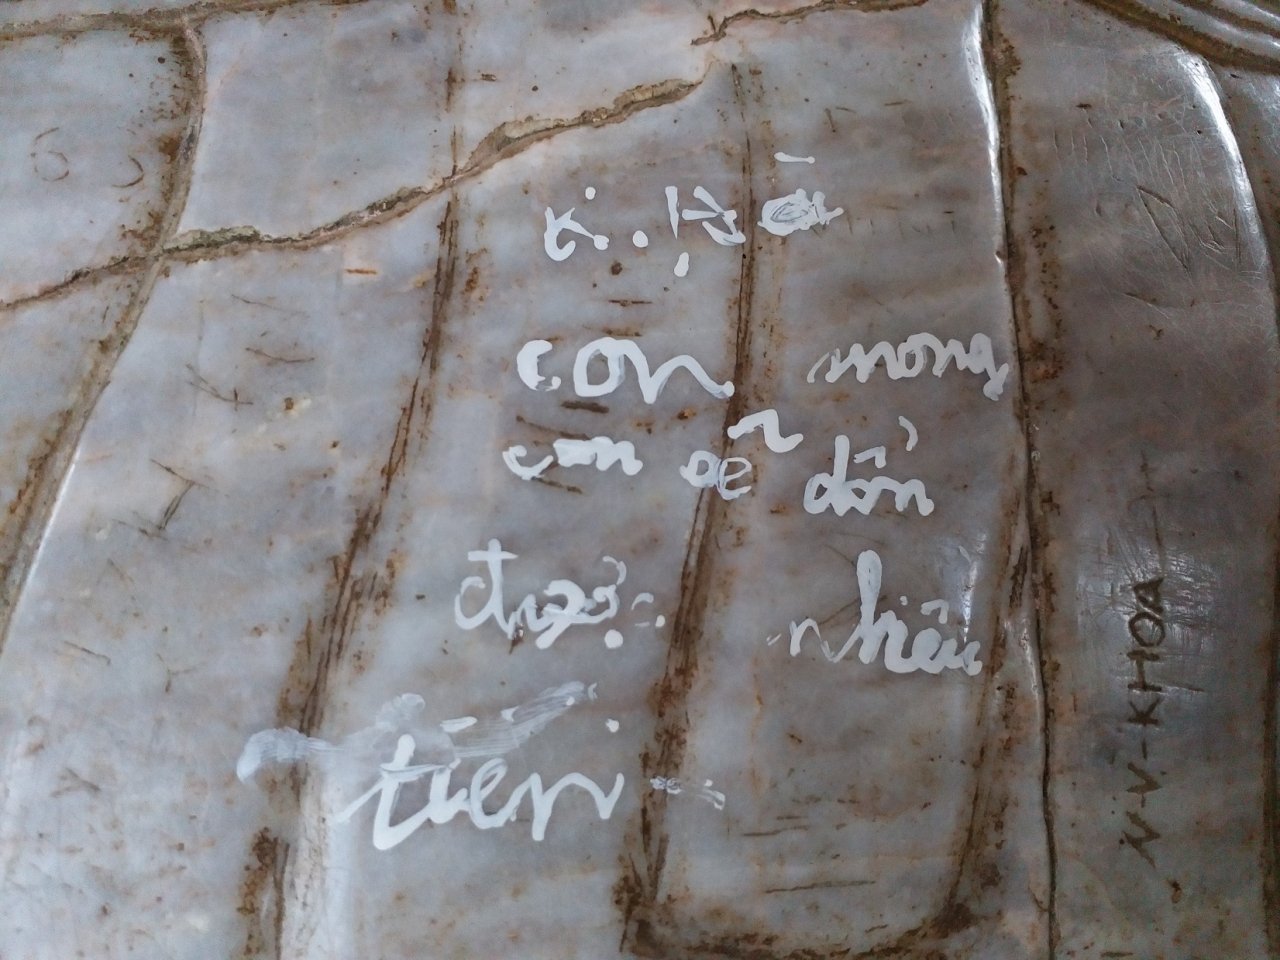 con mong
con sẽ dồn
được nhiều
tiền
N-V-KHOA